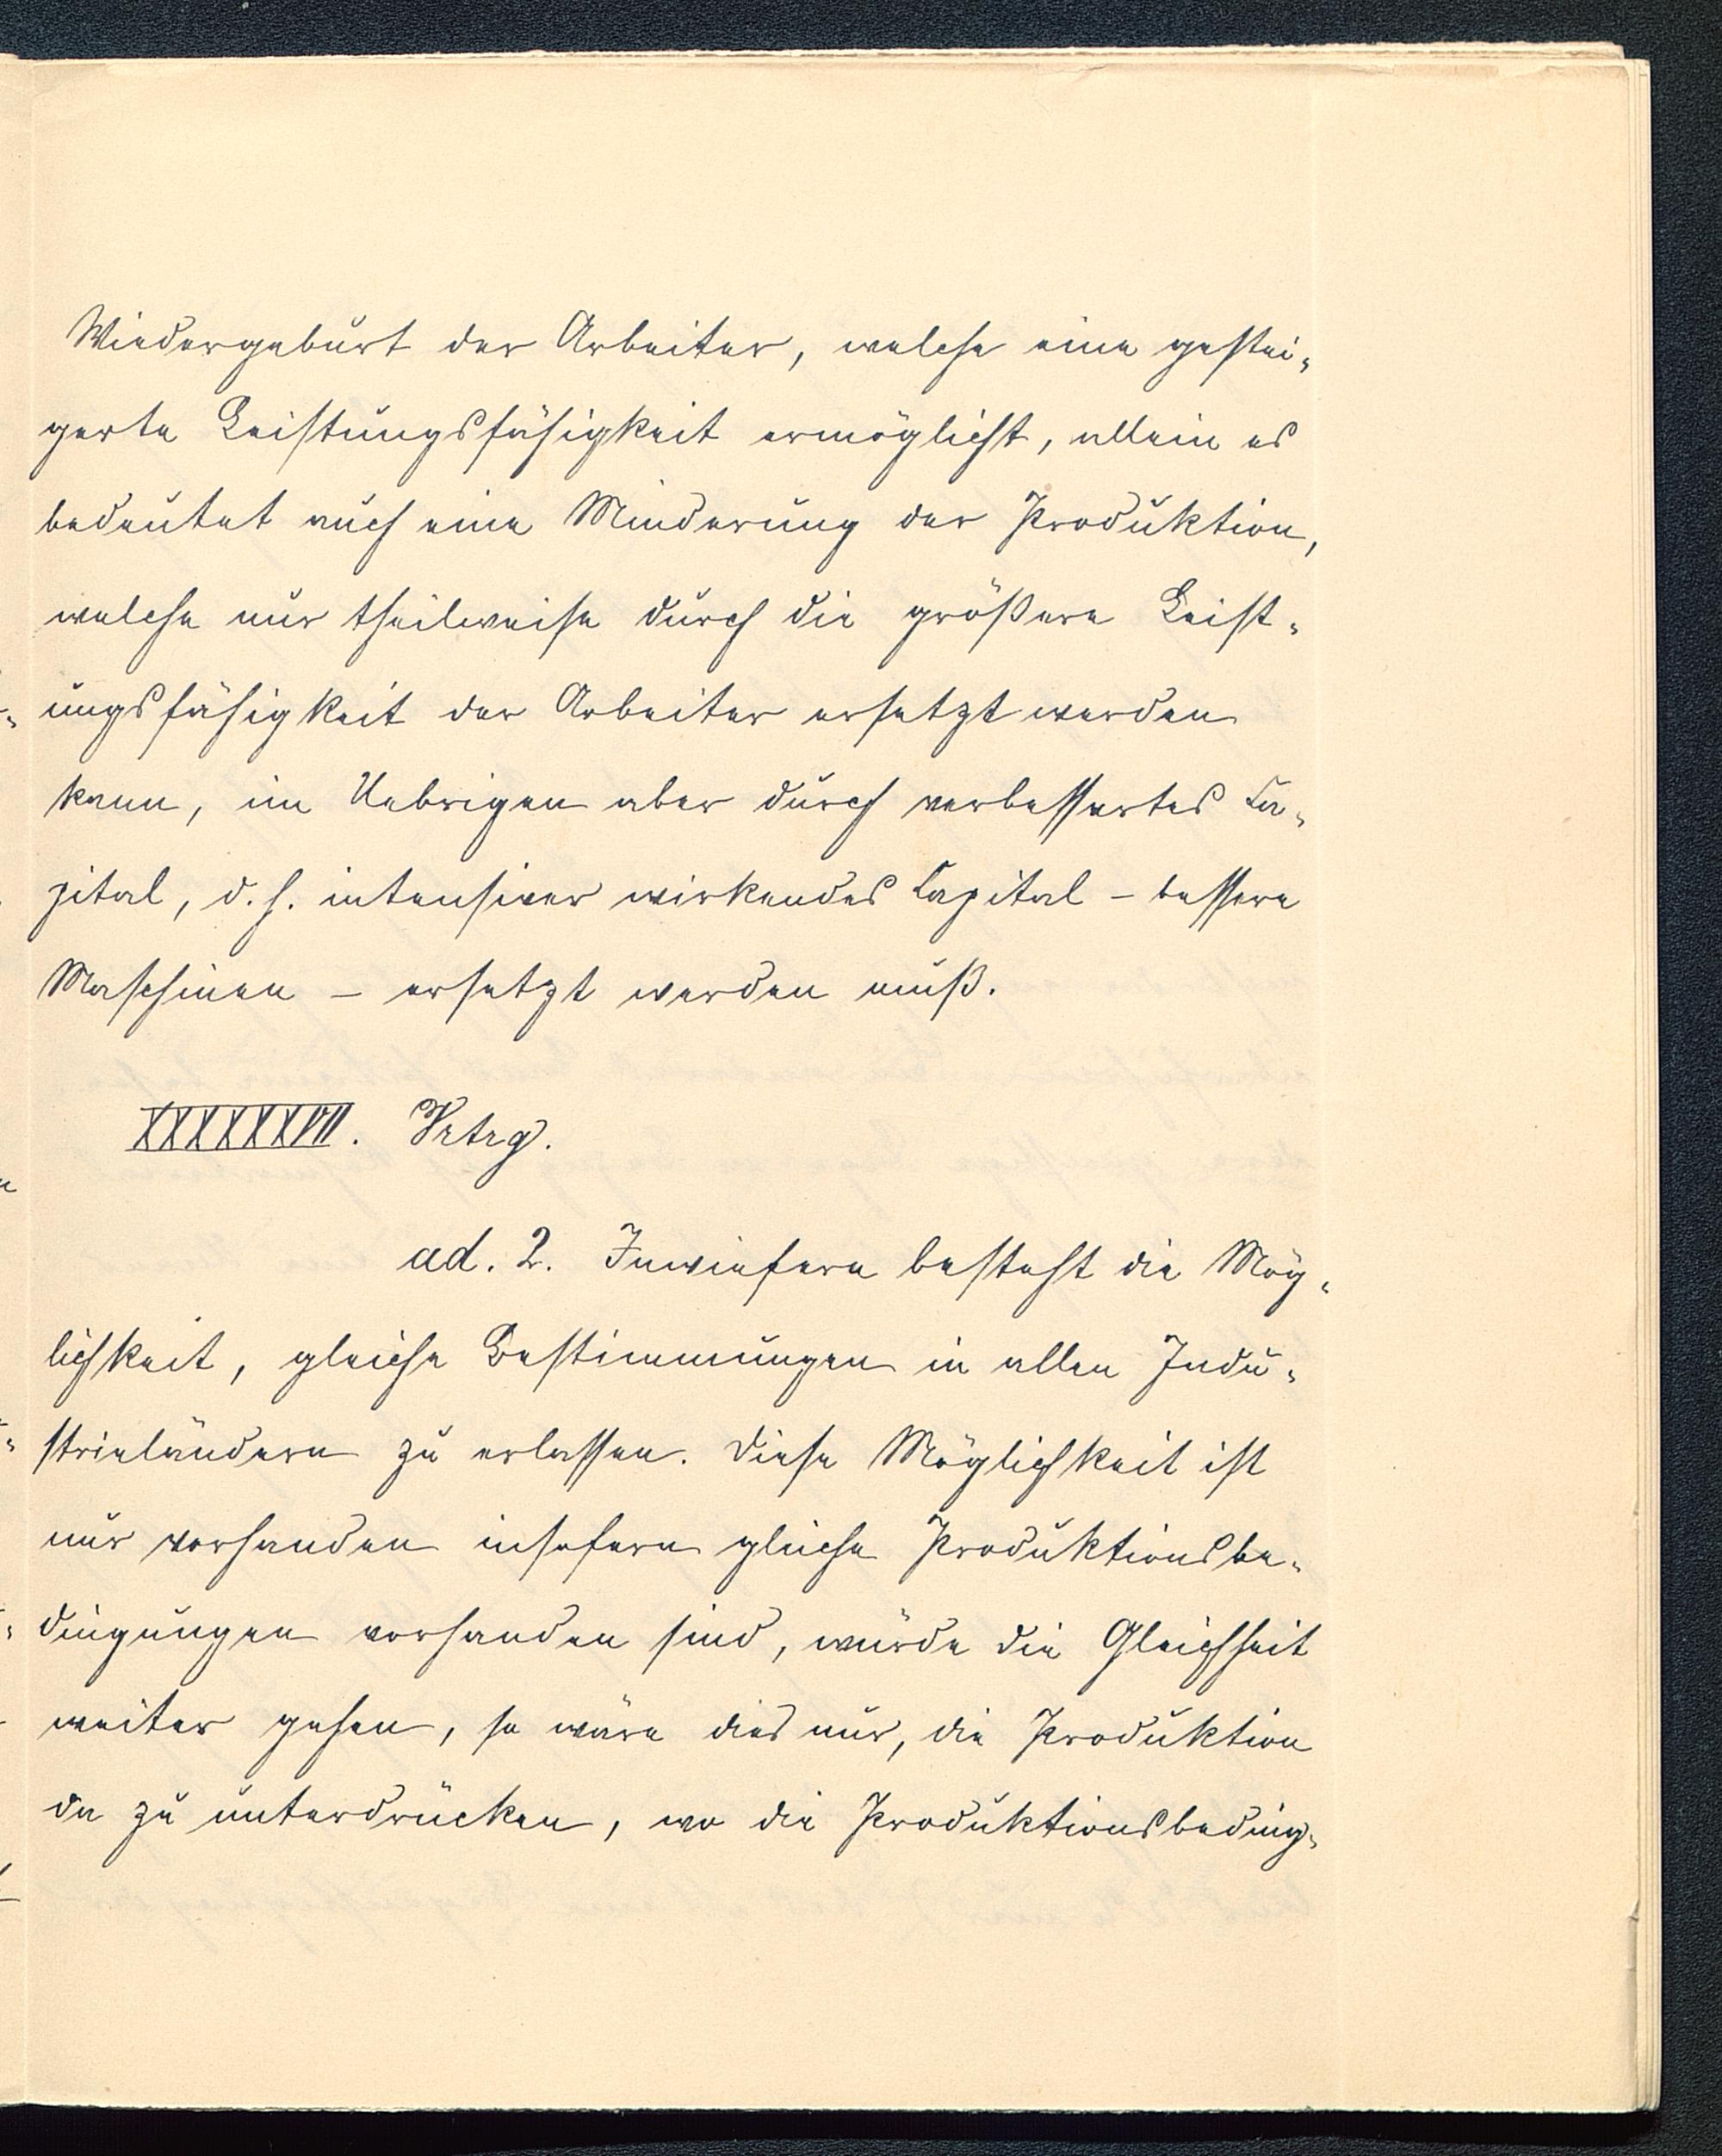 Wiedergeburt der Arbeiter, welche eine gestei-
gerte Leistungsfähigkeit ermöglicht, allein es
bedeutet auch eine Minderung der Produktion,
welche nur theilweise durch die größere Leist-
ungsfähigkeit der Arbeiter ersetzt werden
kann, im Uebrigen aber durch verbessertes Ca-
pital, d. h. intensiver wirkendes Capital – bessere
Maschinen – ersetzt werden muß.
XXXXXXVII. Vrtrg.
ad. 2. Inwiefern besteht die Mög-
lichkeit, gleiche Bestimmungen in allen Indu-
strieländern zu erlassen. Diese Möglichkeit ist
nur vorhanden insofern gleiche Produktionsbe-
dingungen vorhanden sind, würde die Gleichheit
weiter gehen, so wäre dies nur, die Produktion
da zu unterdrücken, wo die Produktionsbeding-